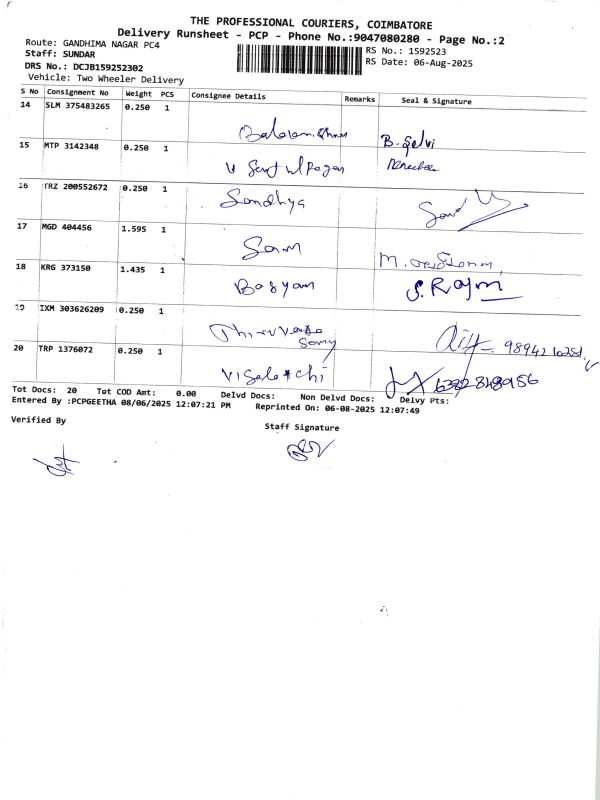 THE PROFESSIONAL COURIERS, COIMBATORE
Delivery Runsheet - PCP - Phone No.:9047080280 - Page No.:2
Route: GANDHIMA NAGAR PC4
RS No.: 1592523
Staff: SUNDAR
RS Date: 06-Aug-2025
DRS No.: DCJB159252302
Vehicle: Two Wheeler Delivery
S No Consignment No Weight PCS Consignee Details Remarks Seal & Signature
14 SLM 375483265 0.250 1
B. Selvi
15 MTP 3142348 0.250 1
16 TRZ 200552672 0.250 1 Sandhya
17 MGD 404456 1.595 1 Sam
18 KRG 373150 1.435 1 Basyam S. Rajm
19 IXM 303626209 0.250 1
20 TRP 1376072 0.250 1 Visalatchi
Tot Docs: 20 Tot COD Amt: 0.00 Delvd Docs: Non Delvd Docs: Delvy Pts:
Entered By :PCPGEETHA 08/06/2025 12:07:21 PM Reprinted On: 06-08-2025 12:07:49
Verified By
Staff Signature